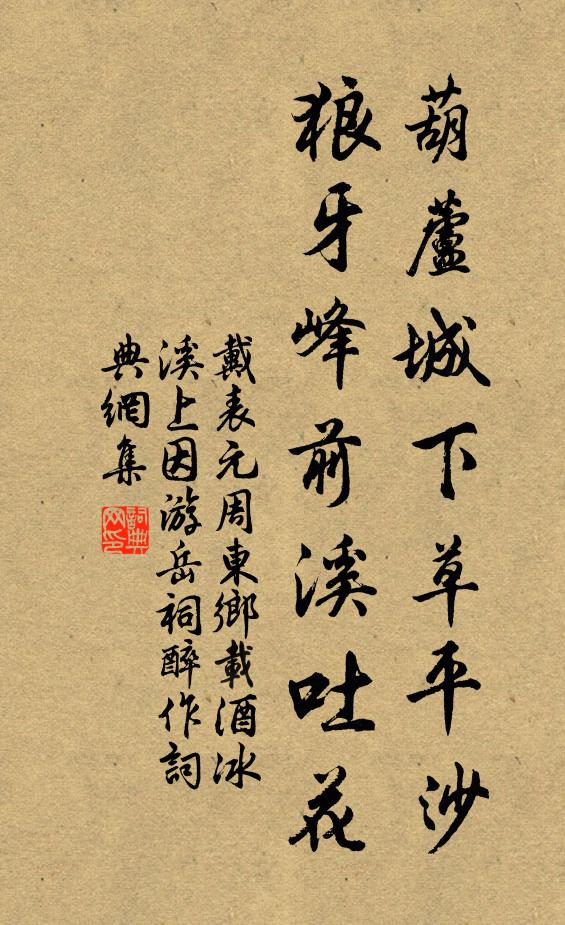 葫蘆城下草平沙
狼牙峰前溪吐花
戴表元周東鄉載酒冰
溪上因游岳祠醉作詞
典網集
詞典
网印